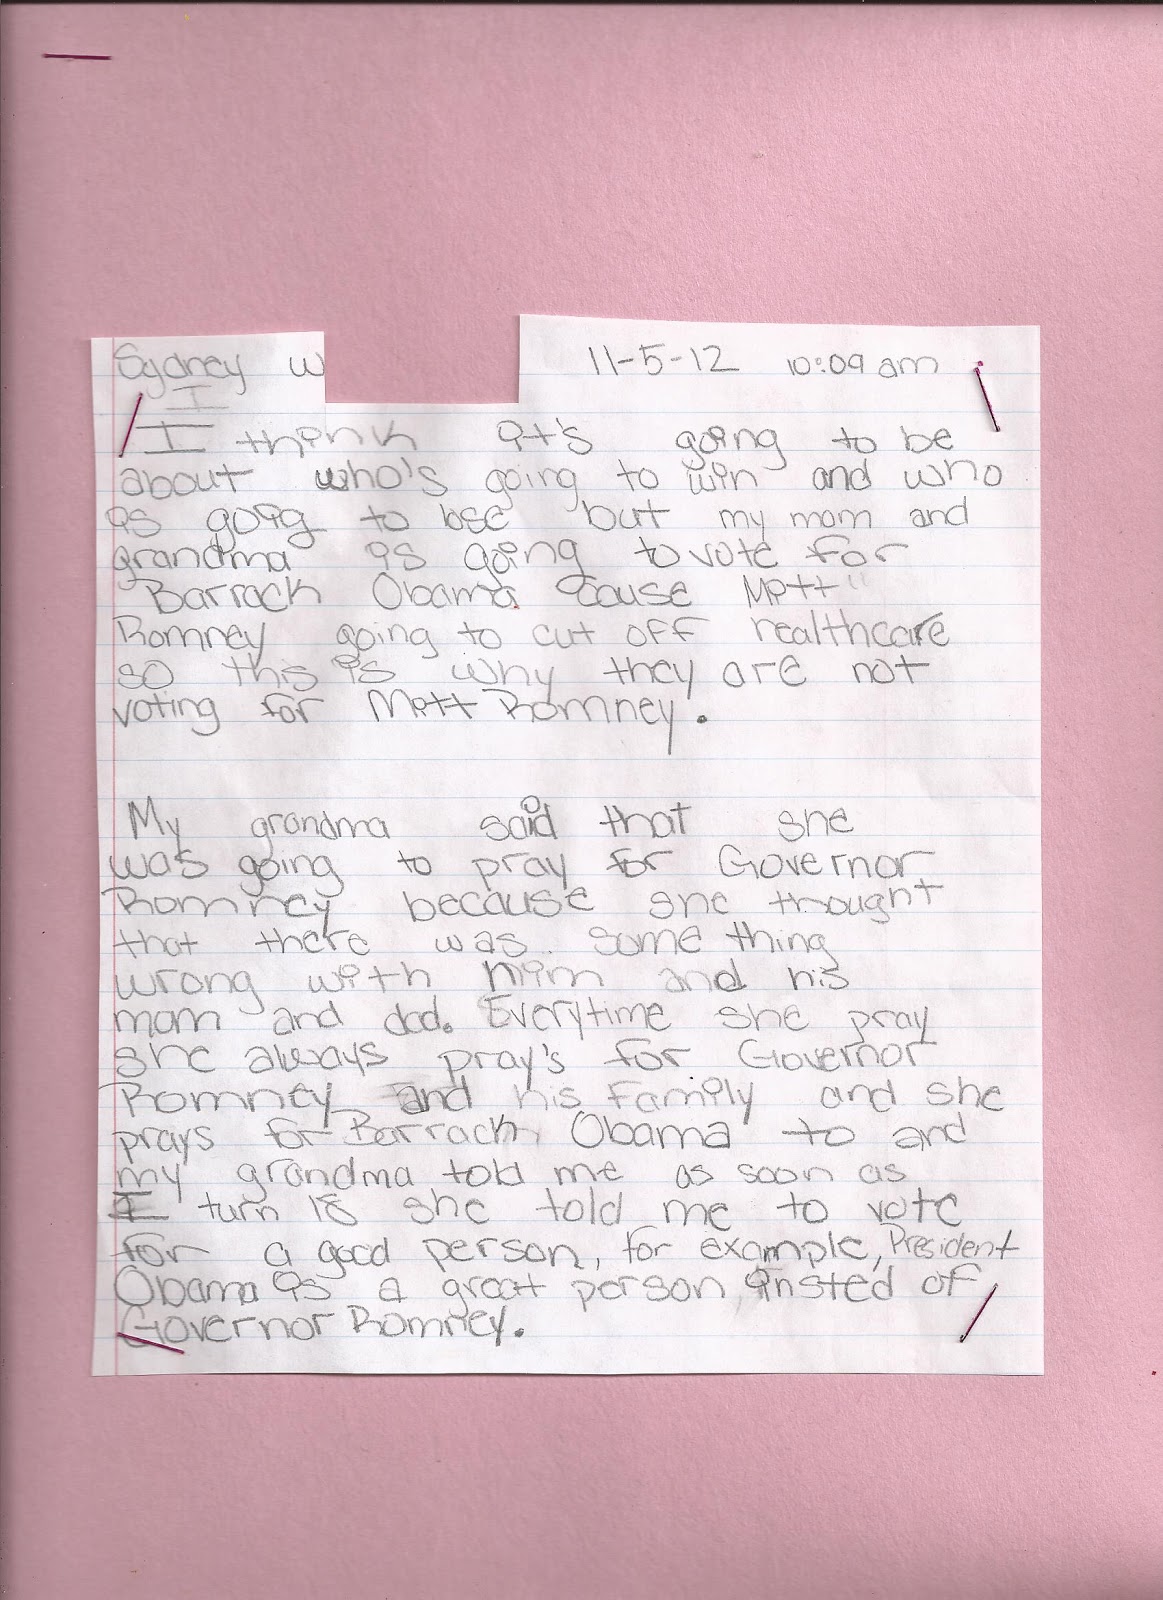 Sydney W 11-5-12 10:09 am
I think it's going to be
about who's going to win and who
is goig to lose but my mom and
grandma is going to vote for
Barrack Obama cause Mitt
Romney going to cut off healthcare
so this is why they are not
voting for Mitt Romney.
My grandma said that she
was going to pray for Governor
Romney because she thought
that there was some thing
wrong with him and his
mom and dad. Everytime she pray
she always pray's for Governor
Romney and his family and she
prays for Barrack Obama to and
my grandma told me as soon as
I turn 18 she told me to vote
for a good person, for example, President
Obama is a great person, insted of
Governor Romney.